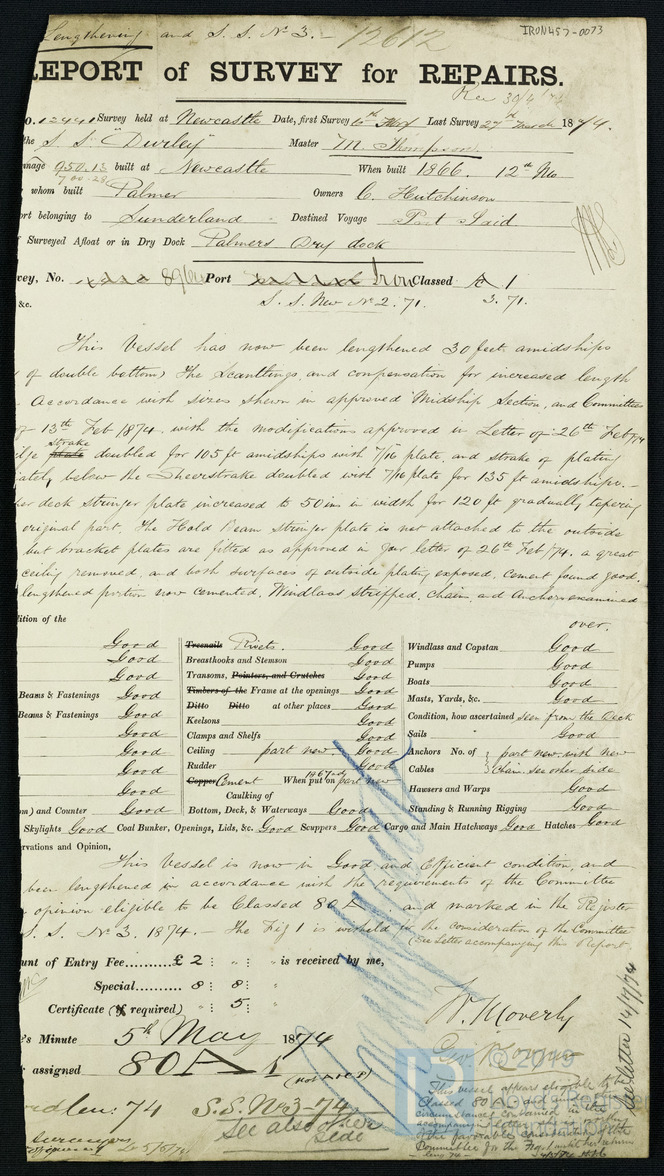 Lengthening and S. S. No 3. - 12612
IRON457-0073
REPORT of SURVEY for REPAIRS.
Rec 30/4/74
o. 12441 Survey held at Newcastle Date, first Survey 6th Last Survey 27th March 1874.
the S. S. "Durley" Master M. Thompson
nnage 950.13 built at Newcastle When built 1866. 12th Mo
whom built Palmer Owners C. Hutchinson
rt belonging to Sunderland Destined Voyage Port Said
Surveyed Afloat or in Dry Dock Palmers Dry dock
vey, No. Port Iron Classed A 1
&c. S. S. New No 2. 71. 3. 71.
This Vessel has now been lengthened 30 feet amidships
of double bottom, The Scantlings and compensation for increased length
Accordance with sizes shewn in approved Midship Section, and Committees
13th Feb 1874, with the modifications approved in Letter of 26th Feb/74
strake
doubled for 105 ft amidships with 7/16 plate, and strake of plating
iately below the Sheerstrake doubled with 7/16 plate for 135 ft amidships. -
er deck stringer plate increased to 50 ins in width for 120 ft gradually tapering
original part. The Hold Beam stringer plate is not attached to the outside
but bracket plates are fitted as approved in your letter of 26th Feb/74. a great
ceiling removed, and both surfaces of outside plating exposed, cement found good,
lengthened portion now cemented. Windlass stripped, chain, and Anchors examined
over.
ition of the
Good Treenails Rivets. Good Windlass and Capstan Good
Good Breasthooks and Stemson Good Pumps Good
Good Transoms, Pointers, and Crutches Good Boats Good
Beams & Fastenings Good Timbers of the Frame at the openings Good Masts, Yards, &c. Good
Beams & Fastenings Good Ditto Ditto at other places Good Condition, how ascertained seen from the Deck
Good Keelsons Good Sails Good
Good Clamps and Shelfs Good Anchors No. of part new with new
Good Ceiling part new Good Cables Chain see other side
Good Rudder Good Hawsers and Warps Good
Copper Cement When put on part new
Caulking of
om) and Counter Good Bottom, Deck, & Waterways Good Standing & Running Rigging Good
Skylights Good Coal Bunker, Openings, Lids, &c. Good Scuppers Good Cargo and Main Hatchways Good Hatches Good
rvations and Opinion,
This Vessel is now in Good and Efficient condition, and
been lengthened in accordance with the requirements of the Committee
opinion eligible to be Classed 80 A and marked in the Register
S. S. No 3. 1874. - The Fig 1 is withheld for the consideration of the Committee
(See Letter accompanying this Report)
unt of Entry Fee......... £ 2 : : is received by me,
Special......... 8 : 8 :
Certificate (if required) : 5 :
W. Moverly
's Minute 5th May 1874
r assigned 80 A 1
len: 74 S. S. No 3-74
See also other side
See letter 14/7/74
This vessel appears eligible to be
Classed 80 A, and the
circumstances contained in the
accompanying letter
the favorable consideration of the
Committee for the Fig 1
© 2019